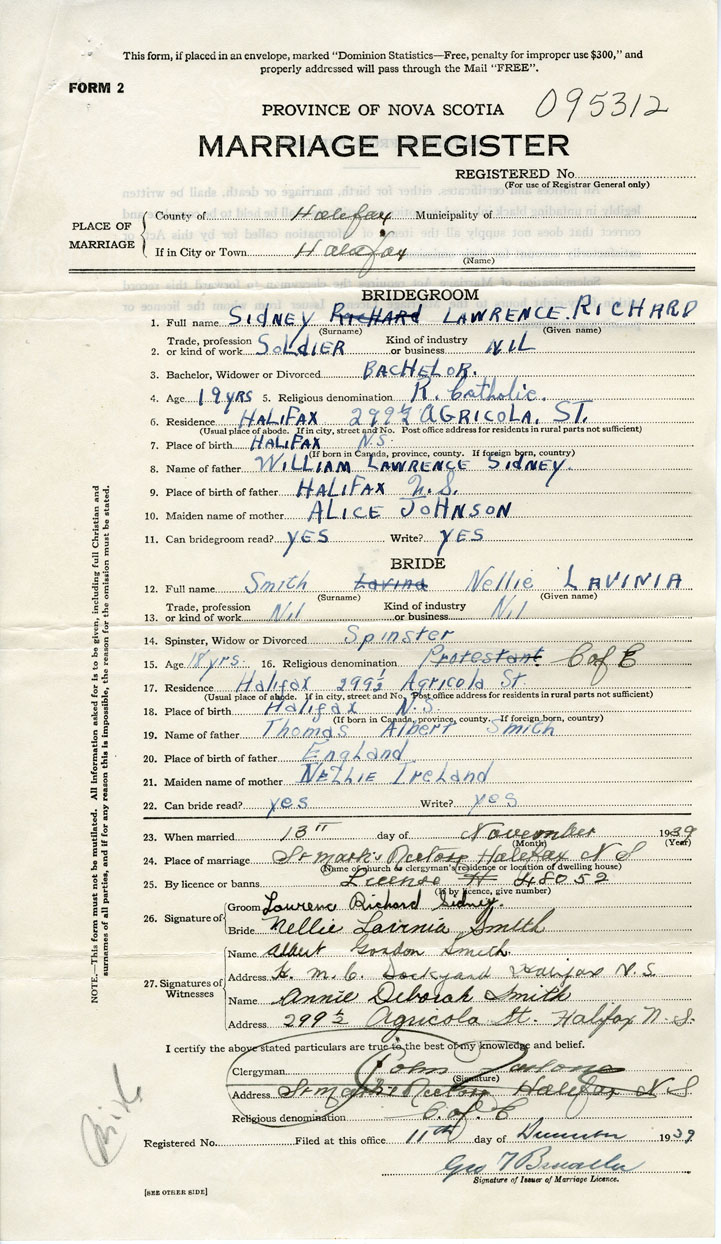 This form, if placed in an envelope, marked "Dominion Statistics—Free, penalty for improper use $300," and
properly addressed will pass through the Mail "FREE".
FORM 2
PROVINCE OF NOVA SCOTIA 095312
MARRIAGE REGISTER
REGISTERED No.
(For use of Registrar General only)
PLACE OF MARRIAGE
County of Halifax Municipality of
If in City or Town Halifax
(Name)
BRIDEGROOM
1. Full name SIDNEY RICHARD LAWRENCE. RICHARD
(Surname) (Given name)
2. Trade, profession or kind of work SOLDIER Kind of industry or business NIL
3. Bachelor, Widower or Divorced BACHELOR.
4. Age 19 YRS 5. Religious denomination R. Catholic.
6. Residence HALIFAX 299½ AGRICOLA. ST.
(Usual place of abode. If in city, street and No. Post office address for residents in rural parts not sufficient)
7. Place of birth HALIFAX N.S.
(If born in Canada, province, county. If foreign born, country)
8. Name of father WILLIAM LAWRENCE SIDNEY.
9. Place of birth of father HALIFAX N.S.
10. Maiden name of mother ALICE JOHNSON
11. Can bridegroom read? YES Write? YES
BRIDE
12. Full name Smith Lavina Nellie LAVINIA
(Surname) (Given name)
13. Trade, profession or kind of work Nil Kind of industry or business Nil
14. Spinster, Widow or Divorced Spinster
15. Age 18 yrs. 16. Religious denomination Protestant C of E
17. Residence Halifax 299½ Agricola St
(Usual place of abode. If in city, street and No. Post office address for residents in rural parts not sufficient)
18. Place of birth Halifax N.S.
(If born in Canada, province, county. If foreign born, country)
19. Name of father Thomas Albert Smith
20. Place of birth of father England
21. Maiden name of mother NELLIE Ireland
22. Can bride read? yes Write? yes
23. When married 13" day of November 1939
(Month) (Year)
24. Place of marriage St Mark's Rectory Halifax N S
(Name of church or clergyman's residence or location of dwelling house)
25. By licence or banns License # 48052
(If by licence, give number)
26. Signature of
Groom Lawrenc Richard Sidney.
Bride Nellie Lavinia Smith
27. Signatures of Witnesses
Name Albert Gordon Smith.
Address H. M. C. Dockyard Halifax N.S.
Name Annie Deborah Smith
Address 299½ Agricola St. Halifax N.S.
I certify the above stated particulars are true to the best of my knowledge and belief.
Clergyman John
(Signature)
Address St Mark's Rectory Halifax N S
Religious denomination C. of. E
Registered No. Filed at this office 11th day of December 1939
Geo T
Signature of Issuer of Marriage Licence.
[SEE OTHER SIDE]
NOTE.—This form must not be mutilated. All information asked for is to be given, including full Christian and
surnames of all parties, and if for any reason this is impossible, the reason for the omission must be stated.